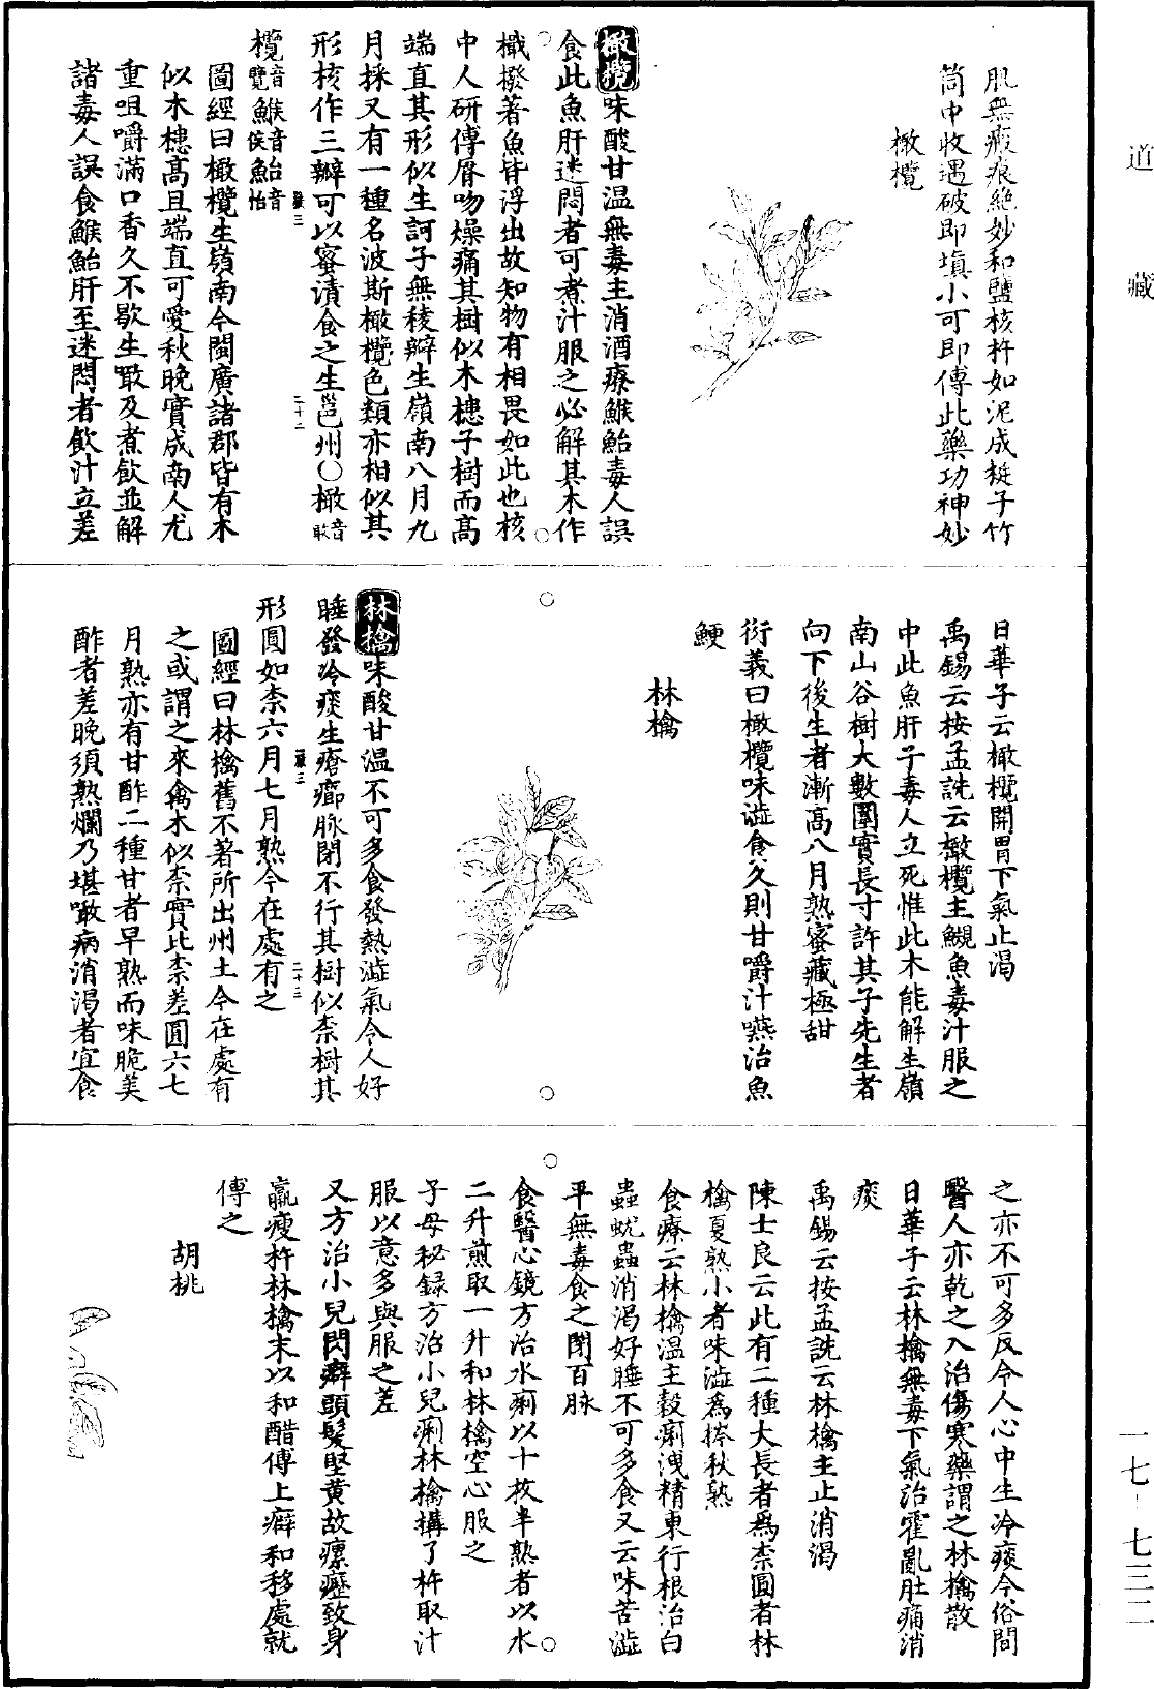 道藏
肌無瘢痕絶妙和鹽核杵如泥成梃子竹
筒中收遇破即填小可即傅此藥功神妙
橄欖
橄欖味酸甘温無毒主消酒療鯸鮐毒人誤
食此魚肝迷悶者可煮汁服之必解其木作
檝撥著魚皆浮出故知物有相畏如此也核
中人研傅脣吻燥痛其樹似木槵子樹而高
端直其形似生訶子無稜瓣生嶺南八月九
月採又有一種名波斯橄欖色類亦相似其
形核作三瓣可以蜜漬食之生邕州○橄音敢
欖音覽鯸音侯鮐音怡
圖經曰橄欖生嶺南今閩廣諸郡皆有木
似木槵高且端直可愛秋晚實成南人尤
重咀嚼滿口香久不歇生噉及煮飲並解
諸毒人誤食鯸鮐肝至迷悶者飲汁立差
日華子云橄欖開胃下氣止渴
禹錫云按孟詵云橄欖主鯢魚毒汁服之
中此魚肝子毒人立死惟此木能解生嶺
南山谷樹大數圍實長寸許其子先生者
向下後生者漸高八月熟蜜藏極甜
衍義曰橄欖味澁食久則甘嚼汁嚥治魚
鯁
林檎
林檎味酸甘温不可多食發熱澁氣令人好
睡發冷痰生瘡癤脉閉不行其樹似柰樹其
形圓如柰六月七月熟今在處有之
圖經曰林檎舊不著所出州土今在處有
之或謂之來禽木似柰實比柰差圓六七
月熟亦有甘酢二種甘者早熟而味脆美
酢者差晚須熟爛乃堪噉病消渴者宜食
之亦不可多反令人心中生冷痰今俗間
醫人亦乾之入治傷寒藥謂之林檎散
日華子云林檎無毒下氣治霍亂肚痛消
痰
禹錫云按孟詵云林檎主止消渴
陳士良云此有二種大長者爲柰圓者林
檎夏熟小者味澁爲㮈秋熟
食療云林檎温主穀痢洩精東行根治白
蟲蚘蟲消渴好睡不可多食又云味苦澁
平無毒食之閉百脉
食醫心鏡方治水痢以十枚半熟者以水
二升煎取一升和林檎空心服之
子母秘録方治小兒痢林檎搆了杵取汁
服以意多與服之差
又方治小兒閃癖頭髮竪黄故瘰癧致身
羸瘦杵林檎末以和醋傅上癬和移處就
傅之
胡桃
一七-七三二